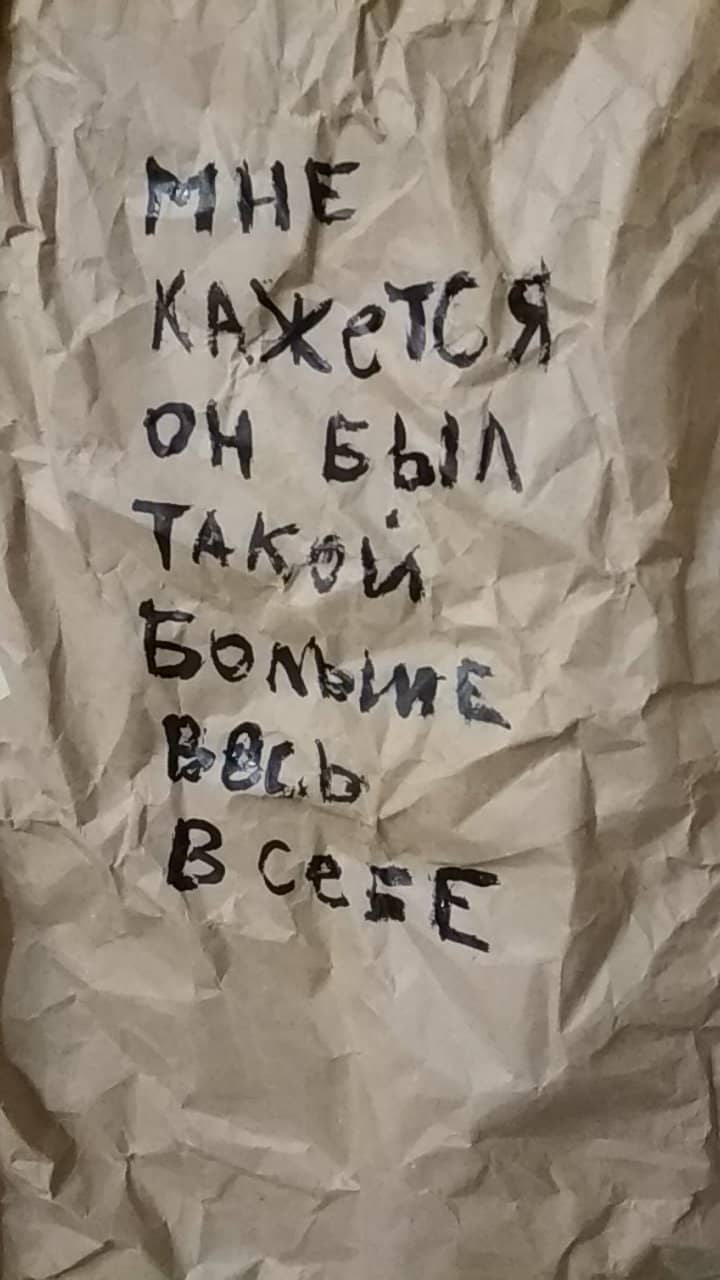 МНЕ
КАЖеТСЯ
ОН БЫЛ
ТАКОЙ
БОЛЬШЕ
ВЕСЬ
В СеБЕ